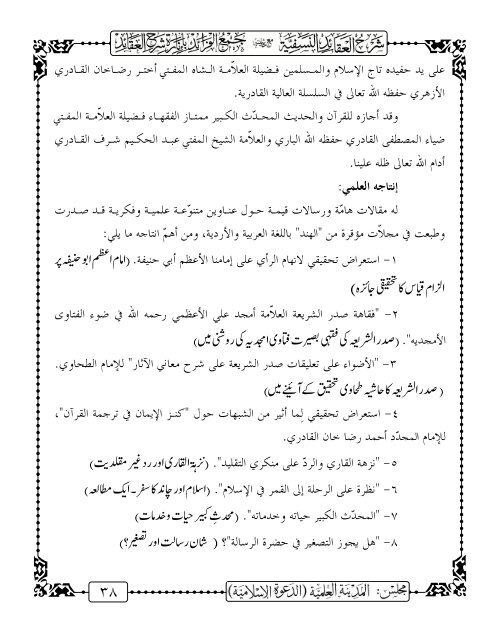 شرح العقائد النسفية مع جمع الفرائد بإنارة شرح العقائد
على يد حفيده تاج الإسلام والمسلمين فضيلة العلاّمة الشاه المفتي أختر رضاخان القادري
الأزهري حفظه الله تعالى في السلسلة العالية القادرية.
وقد أجازه للقرآن والحديث المحدّث الكبير ممتاز الفقهاء فضيلة العلاّمة المفتي
ضياء المصطفى القادري حفظه الله الباري والعلاّمة الشيخ المفتي عبد الحكيم شرف القادري
أدام الله تعالى ظله علينا.
إنتاجه العلمي:
له مقالات هامّة ورسالات قيمة حول عناوين متنوّعة علمية وفكرية قد صدرت
وطبعت في مجلاّت مؤقرة من "الهند" باللغة العربية والأردية، ومن أهمّ انتاجه ما يلي:
١- استعراض تحقيقي لاتهام الرأي على إمامنا الأعظم أبي حنيفة. (امام اعظم ابو حنیفہ پر
الزام قیاس کا تحقیقی جائزہ)
٢- "فقاهة صدر الشريعة العلاّمة أمجد علي الأعظمي رحمه الله في ضوء الفتاوى
الأمجديه". (صدر الشریعہ کی فقہی بصیرت فتاوی امجدیہ کی روشنی میں)
٣- "الأضواء على تعليقات صدر الشريعة على شرح معاني الآثار" للإمام الطحاوي.
(صدر الشریعہ کا حاشیہ طحاوی تحقیق کے آئینے میں)
٤- استعراض تحقيقي لِما أثير من الشبهات حول "كنز الإيمان في ترجمة القرآن"،
للإمام المجدّد أحمد رضا خان القادري.
٥- "نزهة القاري والردّ على منكري التقليد". (نزہۃ القاری اور رد غیر مقلدیت)
٦- "نظرة على الرحلة إلى القمر في الإسلام". (اسلام اور چاند کا سفر۔ ایک مطالعہ)
٧- "المحدّث الكبير حياته وخدماته". (محدث کبیر حیات وخدمات)
٨- "هل يجوز التصغير في حضرة الرسالة"؟ (شان رسالت اور تصغیر؟)
مجلس: المدينة العلمية (الدعوة الإسلامية)
٣٨